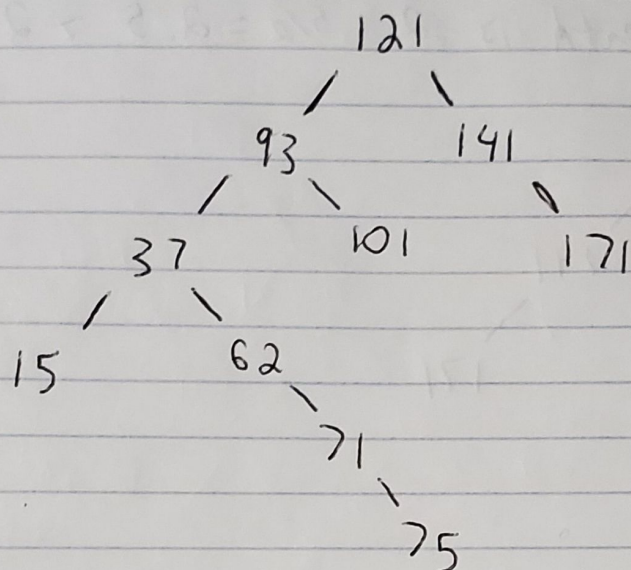 121
93 141
37 101 171
15 62
71
75